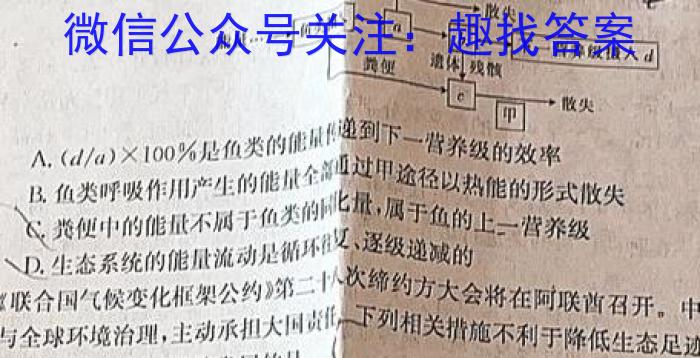 微信公众号关注：趣找答案
散失
a
d
粪便
遗体、残骸
c
散失
甲
A. (d/a)×100%是鱼类的能量传递到下一营养级的效率
B. 鱼类呼吸作用产生的能量全部通过甲途径以热能的形式散失
C. 粪便中的能量不属于鱼类的同化量,属于鱼的上一营养级
D. 生态系统的能量流动是循环往复、逐级递减的
《联合国气候变化框架公约》第二十八次缔约方大会将在阿联酋召开。中
与全球环境治理,主动承担大国责任,下列相关措施不利于降低生态足迹